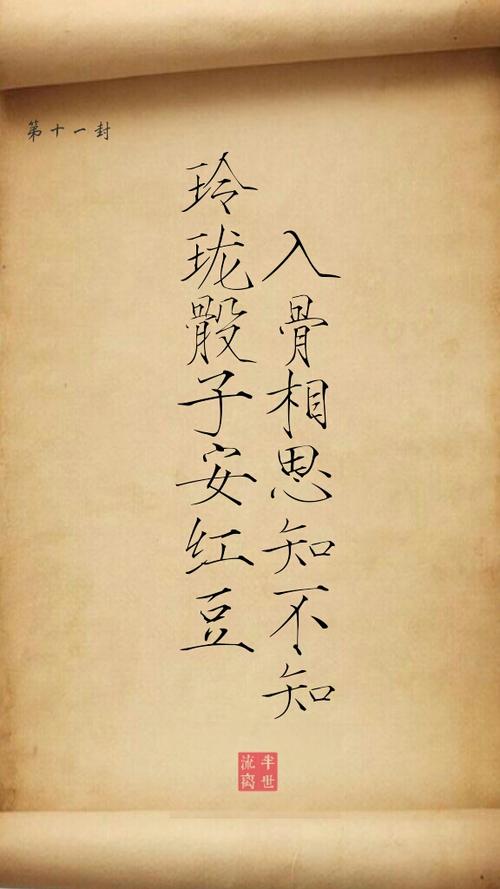 第十一封
玲珑骰子安红豆
入骨相思知不知
半世
流离